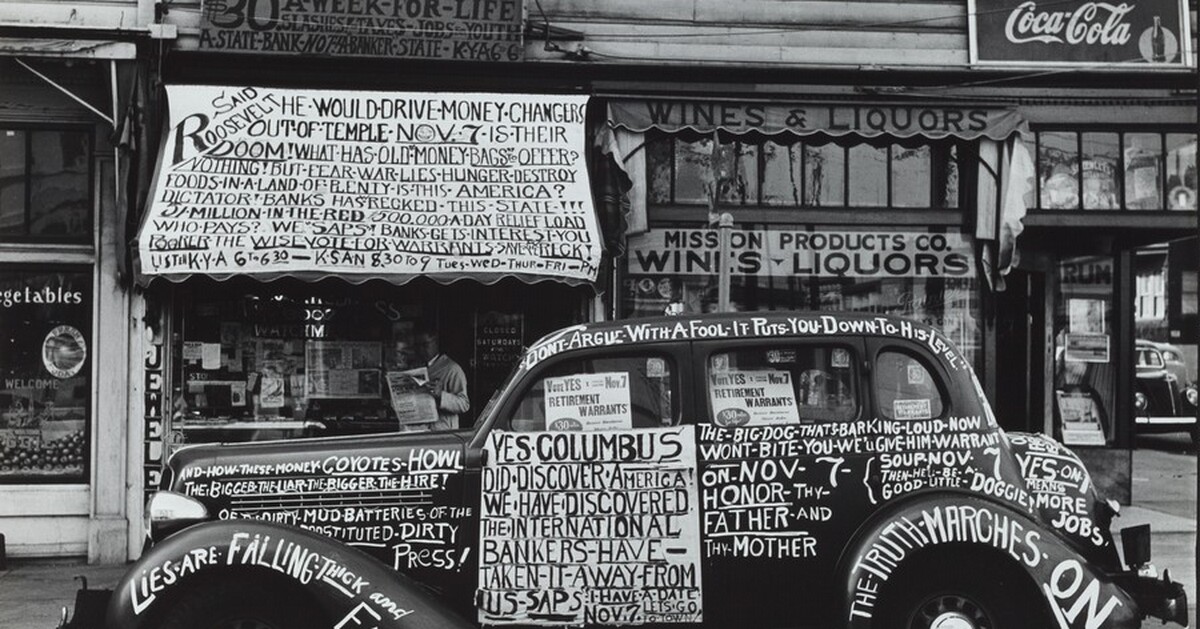 $30 A-WEEK-FOR-LIFE
SLASHES-TAXES-JOBS-YOUTH
A-STATE-BANK-NOT-A-BANKER-STATE-KYA 6-6
Coca-Cola
SAID
ROOSEVELT HE-WOULD-DRIVE-MONEY-CHANGERS
OUT-OF-TEMPLE-NOV-7-IS-THEIR
DOOM! WHAT-HAS-OLD-MONEY-BAGS-TO-OFFER?
NOTHING! BUT-FEAR-WAR-LIES-HUNGER-DESTROY
FOODS-IN-A-LAND-OF-PLENTY-IS-THIS-AMERICA?
DICTATOR! BANKS HAS REGKED-THIS-STATE-!!!
MILLION-IN-THE-RED 500,000-A-DAY RELIEF LOAD
WHO-PAYS? WE "SAPS" BANKS-GETS-INTEREST-YOU
THE WISE VOTE-FOR-WARRANTS-SAVE RECK!
LISTEN-K-Y-A 6 TO 6:30 — K-SAN 8:30 TO 9 TUES-WED-THUR-FRI-PM
WINES & LIQUORS
MISSION PRODUCTS CO.
WINES - LIQUORS
RUM
egetables
WELCOME
WATCHMA
JEWELE
CLOSED
SATURDAYS
"DONT-ARGUE-WITH-A-FOOL-IT PUTS-YOU-DOWN-TO HIS-LEVEL"
VOTE YES Nov. 7
RETIREMENT
WARRANTS
$30
VOTE YES Nov. 7
RETIREMENT
WARRANTS
$30
AND-HOW-THESE-MONEY COYOTES-HOWL
THE-BIGGER-THE-LIAR-THE-BIGGER-THE-HIRE!
OF-DIRTY-MUD BATTERIES-OF THE
PROSTITUTED-DIRTY
PRESS!
LIES-ARE FALLING-THICK and
YES-COLUMBUS
DID-DISCOVER-AMERICA!
WE-HAVE-DISCOVERED
THE-INTERNATIONAL
BANKERS-HAVE—
TAKEN-IT-AWAY-FROM
US-SAPS I-HAVE-A-DATE
NOV.7. LETS-GO
TO-TOWN!
THE-BIG-DOG-THATS-BARKING-LOUD-NOW
WONT-BITE-YOU-WE'LL GIVE HIM-WARRANT
ON-NOV-7- SOUP-NOV. 7
HONOR-THY- THEN-HE'LL-BE-A-
GOOD-LITTLE-DOGGIE!
FATHER-AND
THY-MOTHER
YES-ON-
MEANS
MORE
JOBS.
THE-TRUTH-MARCHES-ON